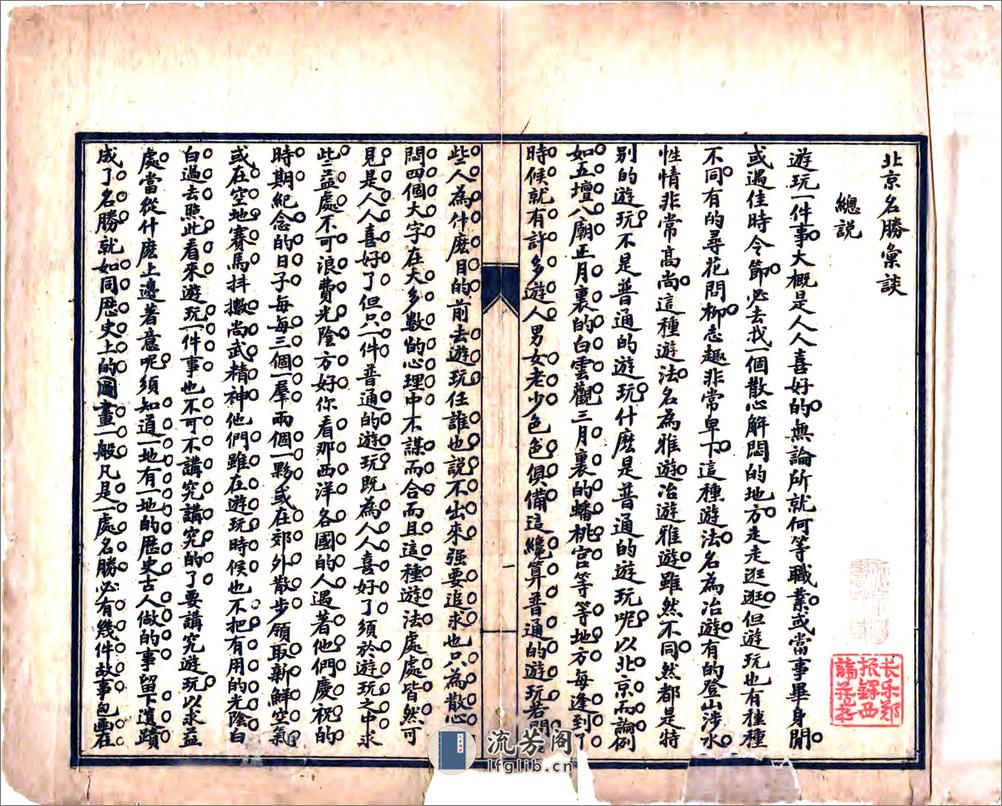 北京名勝彙談
總説
遊玩一件事大概是人人喜好的無論所就何等職業或當事畢身閒
或遇佳時令節必去找一個散心解悶的地方走走逛逛但遊玩也有種種
不同有的尋花問柳志趣非常卑下這種遊法名為冶遊有的登山涉水
性情非常高尚這種遊法名為雅遊冶遊雅遊雖然不同然都是特
別的遊玩不是普通的遊玩什麽是普通的遊玩呢以北京而論例
如五壇八廟正月裏的白雲觀三月裏的蟠桃宮等等地方每逢到了
時候就有許多遊人男女老少色色俱備這纔算普通的遊玩若問
些人為什麽目的前去遊玩任誰也説不出來强要追求也只為散心
悶四個大字在大多數的心理中不謀而合而且這種遊法處處皆然可
見是人人喜好了但只一件普通的遊玩既為人人喜好了須於遊玩之中求
些益處不可浪費光陰方好你看那西洋各國的人遇著他們慶祝的
時期紀念的日子每每三個一羣兩個一夥或在郊外散步領取新鮮空氣
或在空地賽馬抖擻尚武精神他們雖在遊玩時候也不把有用的光陰白
白過去照此看來遊玩一件事也不可不講究講究的了要講究遊玩以求益
處當從什麽上邊著意呢須知道一地有一地的歷史古人做的事留下遺蹟
成了名勝就如同歷史上的圖畫一般凡是一處名勝必有幾件故事包
在
长乐郑
振鐸西
諦藏书
流芳阁
lfglib.cn